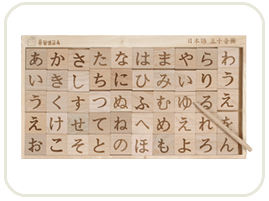 日本語 五十音圖
あかさたなはまやらわ
いきしちにひみいりう
うくすつぬふむゆるえ
えけせてねへめえれを
おこそとのほもよろん